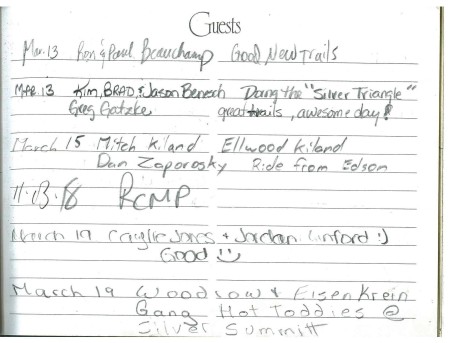 Guests
Mar. 13 Ron & Paul Beauchamp Good New Trails
MAR. 13 Kim, BRAD, & Jason Benesh Doing the "Silver Triangle"
Greg Gatzke great trails, awesome day!
March 15 Mitch Kiland Ellwood Kiland
Dan Zaporosky Ride from Edson
RCMP
March 19 Jones + Jordan Linford :)
Good :)
March 19 Woodrow & Eisenkrein
Gang Hot Toddies @
Silver Summitt